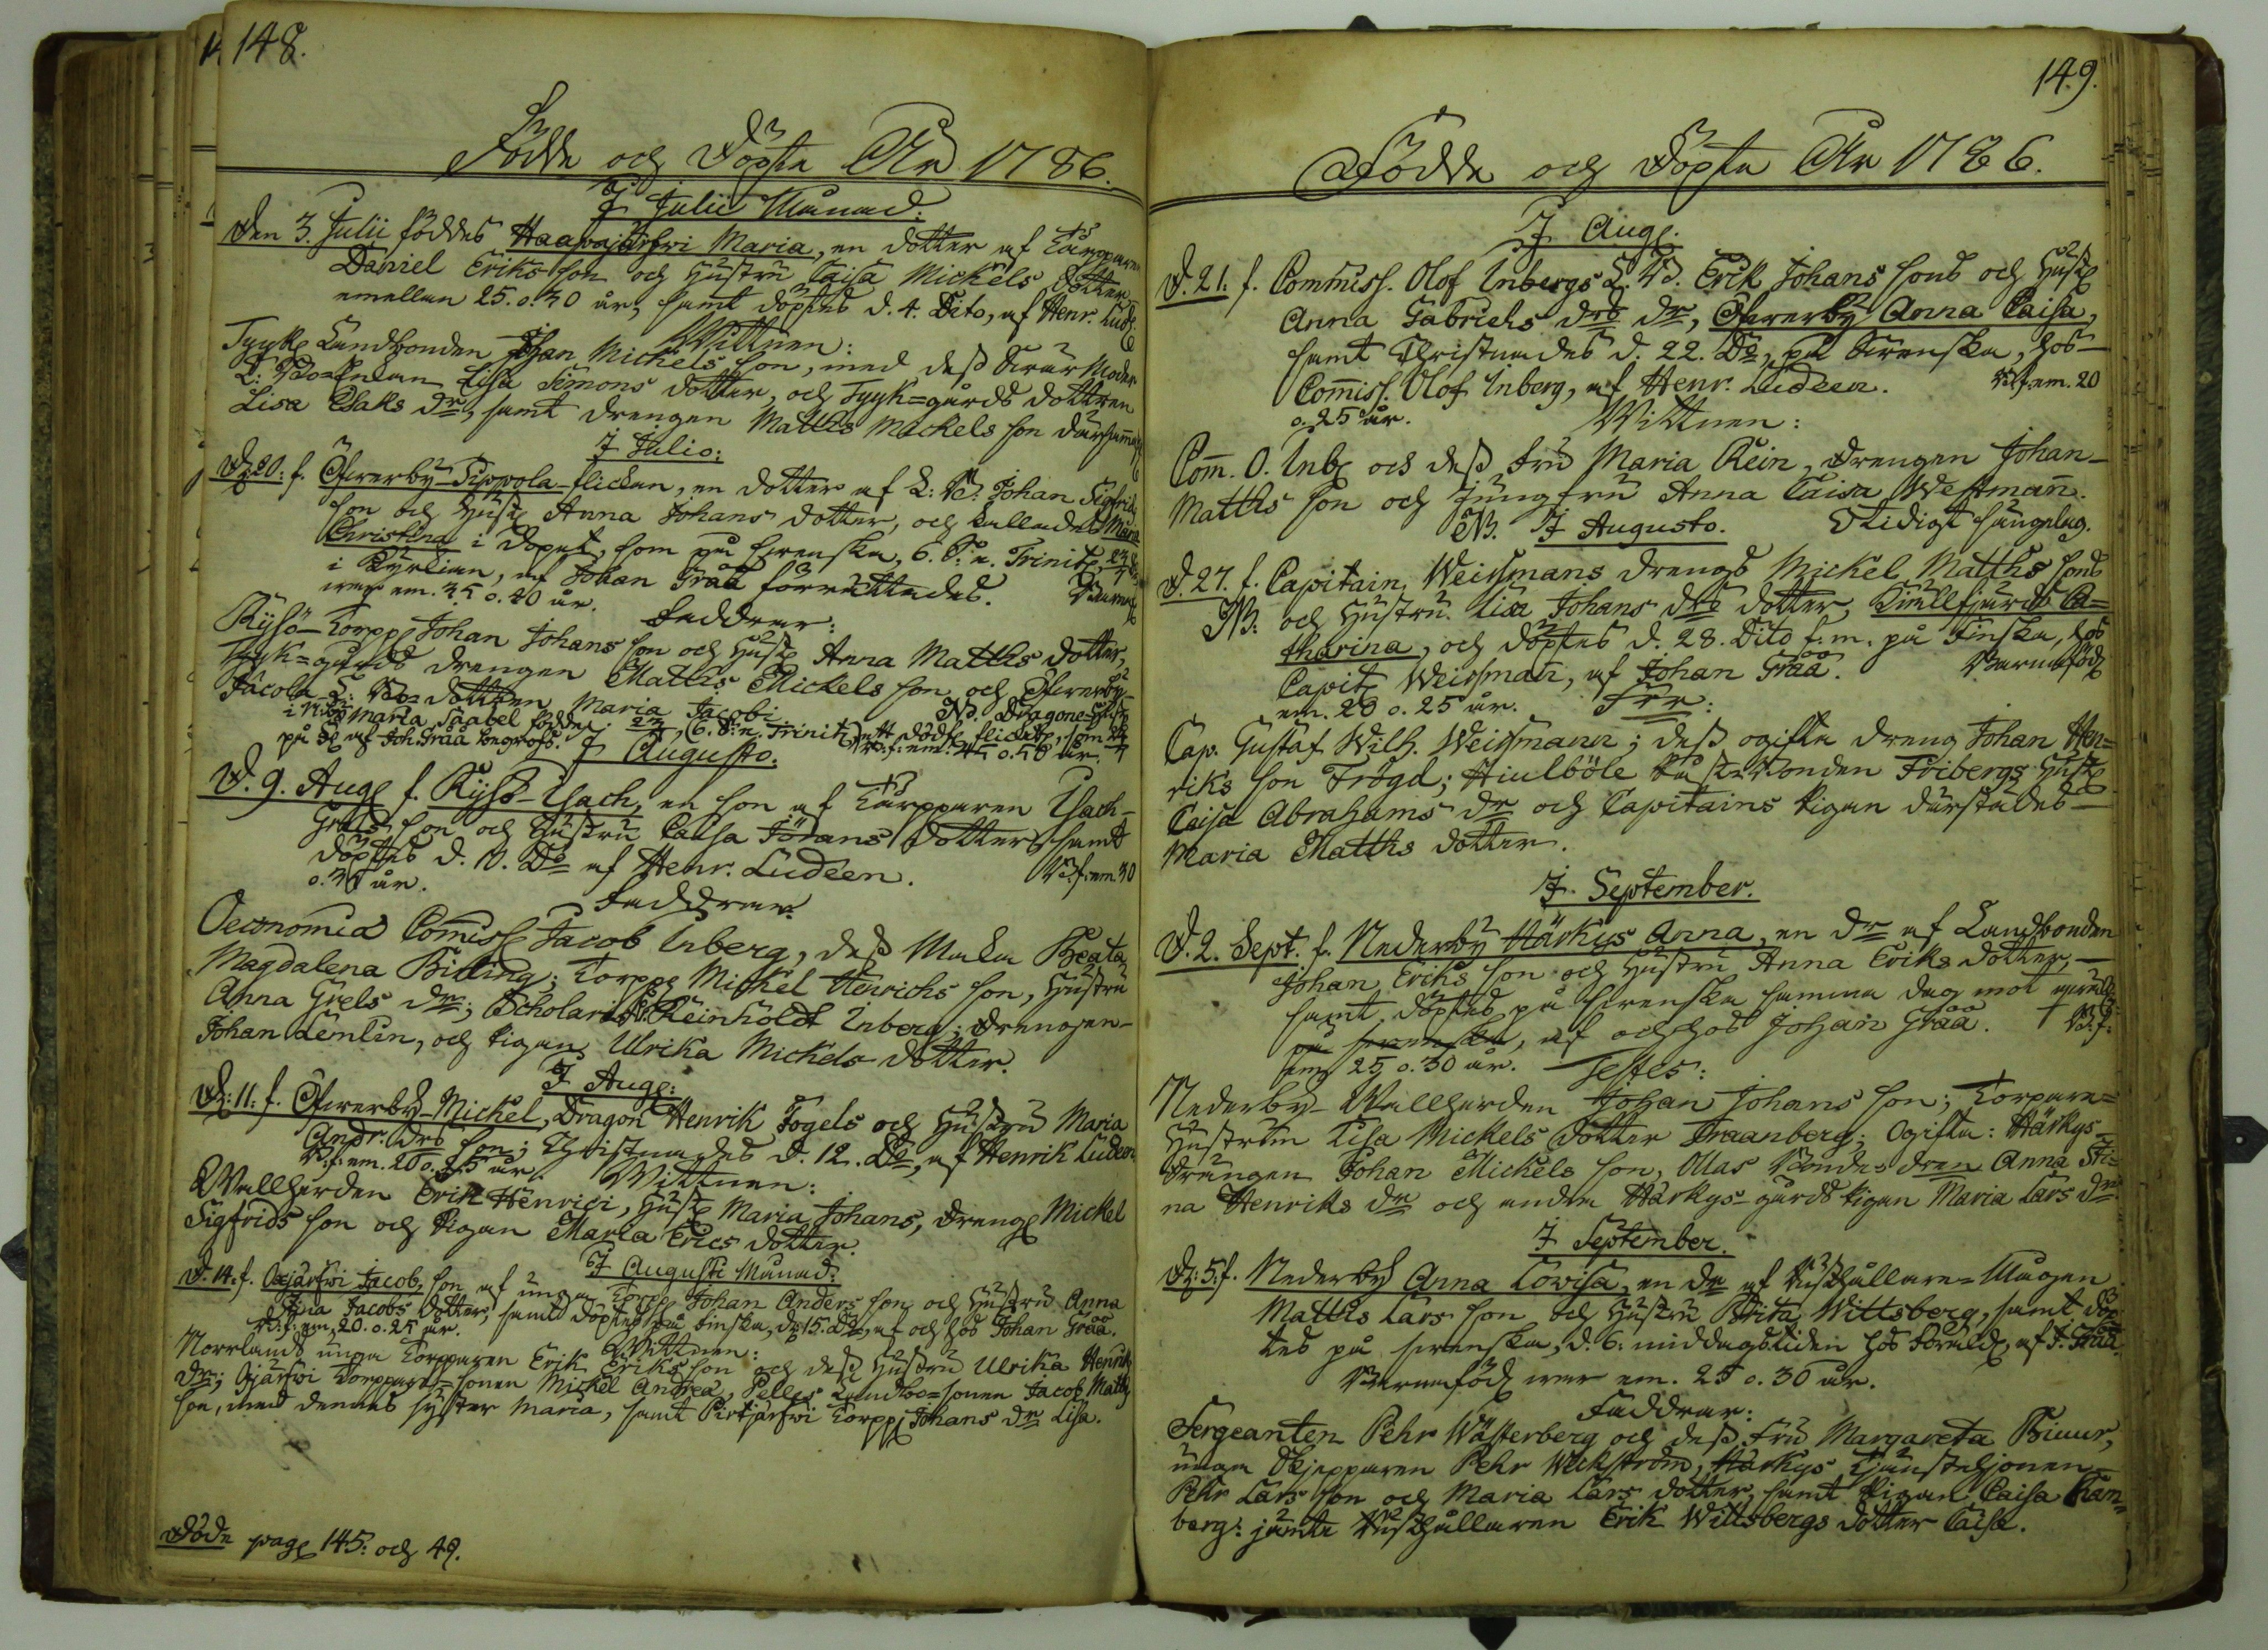 148.
Födde och Döpte År 1786.
I Julii Månad.
Den 3. Julii föddes Haapajärfwi Maria, en dotter af Torparen
Daniel Eriks son och Hustru Caisa Mickels dotter
emellan 25. o. 30 år, samt döptes d. 4. Dito, af Henr. Lud.
Wittnen:
Tyyk Landbonden Johan Mickels son, med dess Swär Moder
Enkan Lisa Simons dotter, och Tyyk=gårds dottren
Lisa Esaks dr, samt drengen Matths Mickels son därsam̄a
I Julio:
D. 20: f. Öfwerby-Sippola-flickan, en dotter af L: B: Johan Sigfrids
son och Hust Anna Johans dotter, och kallades Maria
Christina i dopet, som på swenska, 6. S: e. Trinit, 23/7
i Kyrkan, af Johan Gråå förrättades. Barnaf
war em. 35 o. 40 år.
Faddrar:
Rysö-Torpp Johan Johans son och Hust Anna Matths dotter,
Tyyk=gårds drengen Matths Mickels son och Öfwerby
Jacola L: Bo= dottren Maria Jacobi. NB. Dragone Hust
Maria Saabel födde 23/7, (6. S: e. Trinit) ett dödt flickeb, som 24/7
på af Joh. Gråå begrofs. B: f: em. 45 o. 50 år.
I Augusto.
D. 9. Aug f. Rysö-Isach, en son af Torpparen Isach
Grels son och Hustru Caisa Johans dotter samt
döptes d. 10. Do af Henr. Ludeen. B: f: em. 30
o. 35 år.
Faddrar:
Oeconomiæ Comiss Jacob Inberg, dess Maka Beata
Magdalena Billing; Torpp Mickel Henrichs son, Hustru
Anna Grels dr; Scholaris Reinholdt Inberg; drengen
Johan Lemlin, och Pigan Ulrika Mickels dotter.
I Aug:
D: 11: f. Öfwerby-Mickel, Dragon Henrik Fogels och Hustru Maria
Andr. drs son; Christnades d. 12. Do, af Henrik Ludeen
B: f: em. 20 o. 25 år
Wittnen:
Wallherden Erik Henrici, Hust Maria Johans, dreng Mickel
Sigfrids son och Pigan Maria Erics dotter.
I Augusti Månad:
D. 14. f. Ojärfwi Jacob, son af unga Torpp Johan Anders son och Hustru Anna
Stina Jacobs dotter, samt döptes på finska, d. 15. Do, af och hos Johan Gråå.
B: f: em. 20. o. 25 år.
Wittnen:
Norrlands unga Torpparen Erik Eriks son och dess Hustru Ulrika Henriks
dr; Ojärfwi Torppare=sonen Mickel Andreæ, Pelles Landbo=sonen Jacob Matths
son, med dennes syster Maria, samt Pirtjärfwi Torpp Johans dr Lisa.
Döde pag 145: och 49.
149.
Födde och Döpte År 1786.
I Aug.
D. 21. f. Commiss. Olof Inbergs L. B. Erik Johans sons och Hust
Anna Gabriels drs dr, Öfwerby Anna Caisa,
samt Christnades d. 22. Do, på Swenska, hos
Com̄iss. Olof Inberg, af Henr. Ludeen. B: f. em. 20
o. 25 år.
Wittnen:
Com̄. O. Inb och dess fru Maria Rein, drengen Johan
Matths son och Jungfru Anna Caisa Westman̄.
NB. I Augusto. Otidigt sängelag.
D. 27. f. Capitain Weissmans drengs Mickel Matths sons
NB. och Hustru Lisa Johans drs dotter, Kiällfjärds Ca=
tharina, och döptes d. 28. Dito f. m. på Finska, hos
Capit Weissman̄, af Johan Gråå. Barnaföd
em. 20 o. 25 år.
Cap. Gustaf Wilh. Weissmann; dess ogifta dreng Johan Hen=
riks son Frögd; Hiulböle Bonden Fribergs Hust
Caisa Abrahams dr och Capitains Pigan därstädes
Maria Matths dotter.
I September.
D. 2. Sept. f. Nederby Härkys Anna, en dr af Landbonden
Johan Eriks son och Hustru Anna Eriks dotter,
samt döptes på swenska samma dag mot
på swenska, af och hos Johan Gråå. B: f:
em. 25 o. 30 år.
Testes:
Nederby-Wallherden Johan Johans son; Torpare=
Hustrun Lisa Mickels dotter Traanberg; Ogifta: Härkys
Drängen Johan Mickels son, Ollas Bonde=dren Anna Sti=
na Henriks dr och andra Härkys-gårds Pigan Maria Lars dr.
I September.
D: 5: f. Nederby Anna Lovisa, en dr af Rusthållare=Mågen
Matths Lars son och Hustru Brita Wittsberg, samt döp=
tes på swenska, d. 6. middagstiden hos Föräld, af J. Gråå.
Barnaföd war em. 25 o. 30 år.
Faddrar:
Sergeanten Pehr Wästerberg och dess fru Margareta Biuur,
unga Skepparen Pehr Weckström, Härkys Tjänstehjonen
Pehr Lars son och Maria Lars dotter, samt Pigan Caisa Ran=
berg: jämte Rusthållaren Erik Wittsbergs dotter Caisa.